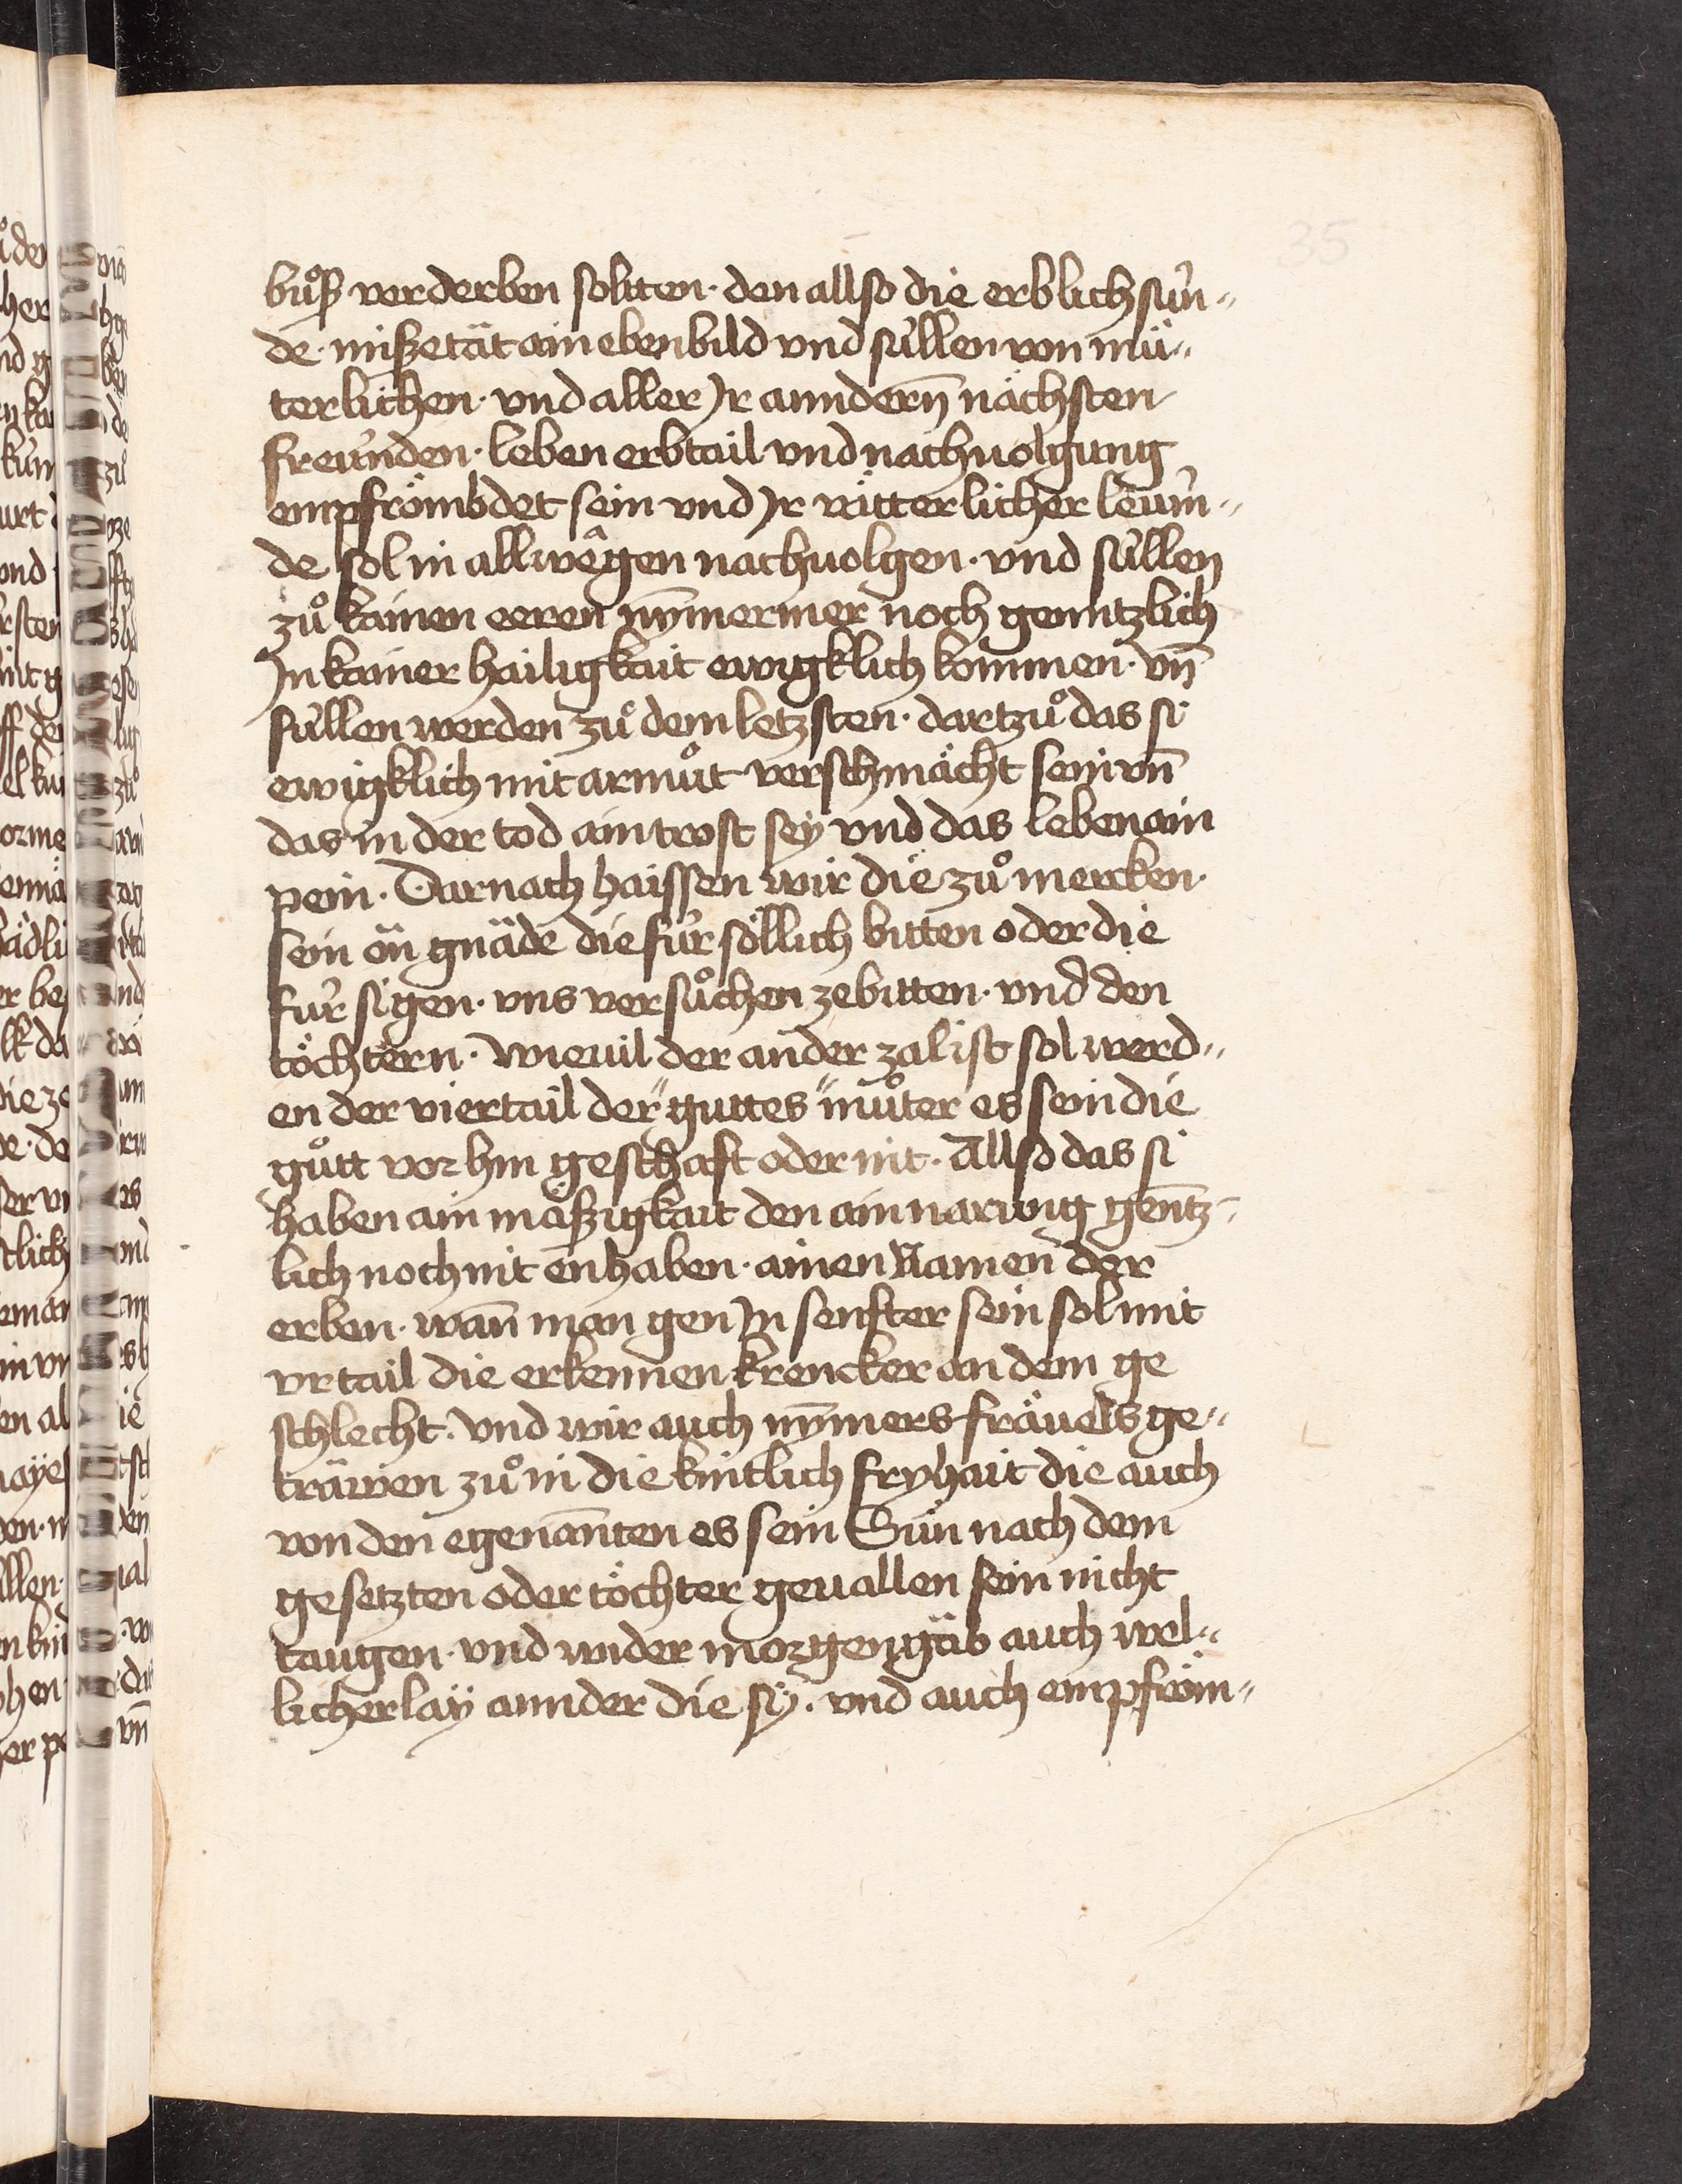 35
buͦß verderben soltten· den allso die erblich sün„
de· mißetät ain ebenbild vnd süllen von mü„
terlichen· vnd aller Jr anndern̄ nächsten
freünden· leben erbtail vnd nachuolgung
empfrömbdet sein vnd Jr vätterlicher leüm„
de sol in allwêgen nachuolgen· vnd süllen
zuͦ kainen eeren nym̄ermer noch genntzlich
Jn kainer hailigkait ewigklich kommen· vn̄
süllen werden zuͦ dem letzsten· dartzuͦ das si
ewigklich mit armuͦt verschmächt sein vn̄
das in der tod ain trost sey vnd das leben ain
pein· Darnach haissen wir die zuͦ mercken·
sein ön gnäde die für söllich bitten oder die
für si gen· vns versuͦchen zebitten· vnd den
töchtern· wieuil der ander zal ist sol werd„
en der viertail der "guttes" muͦter es sein die
guͦtt vor hin geschaft oder nit· Allso das si
haben ain mäßigkait den ain narung genn̄tz„
lich noch nit en haben· ainen Namen der
erben· wan̄ man gen Jn senfter sein sol mit
vrtail die erkennen krencker an dem ge
schlecht· vnd wir auch nym̄ers fräuels ge„
träwen zuͦ in die kintlich fryhait die auch
von den egenan̄ten es sein Sün nach dem
gesetzten oder töchter geuallen sein nicht
taugen· vnd wider morgengäb auch wel„
licherlay annder die sy· vnd auch empfröm„